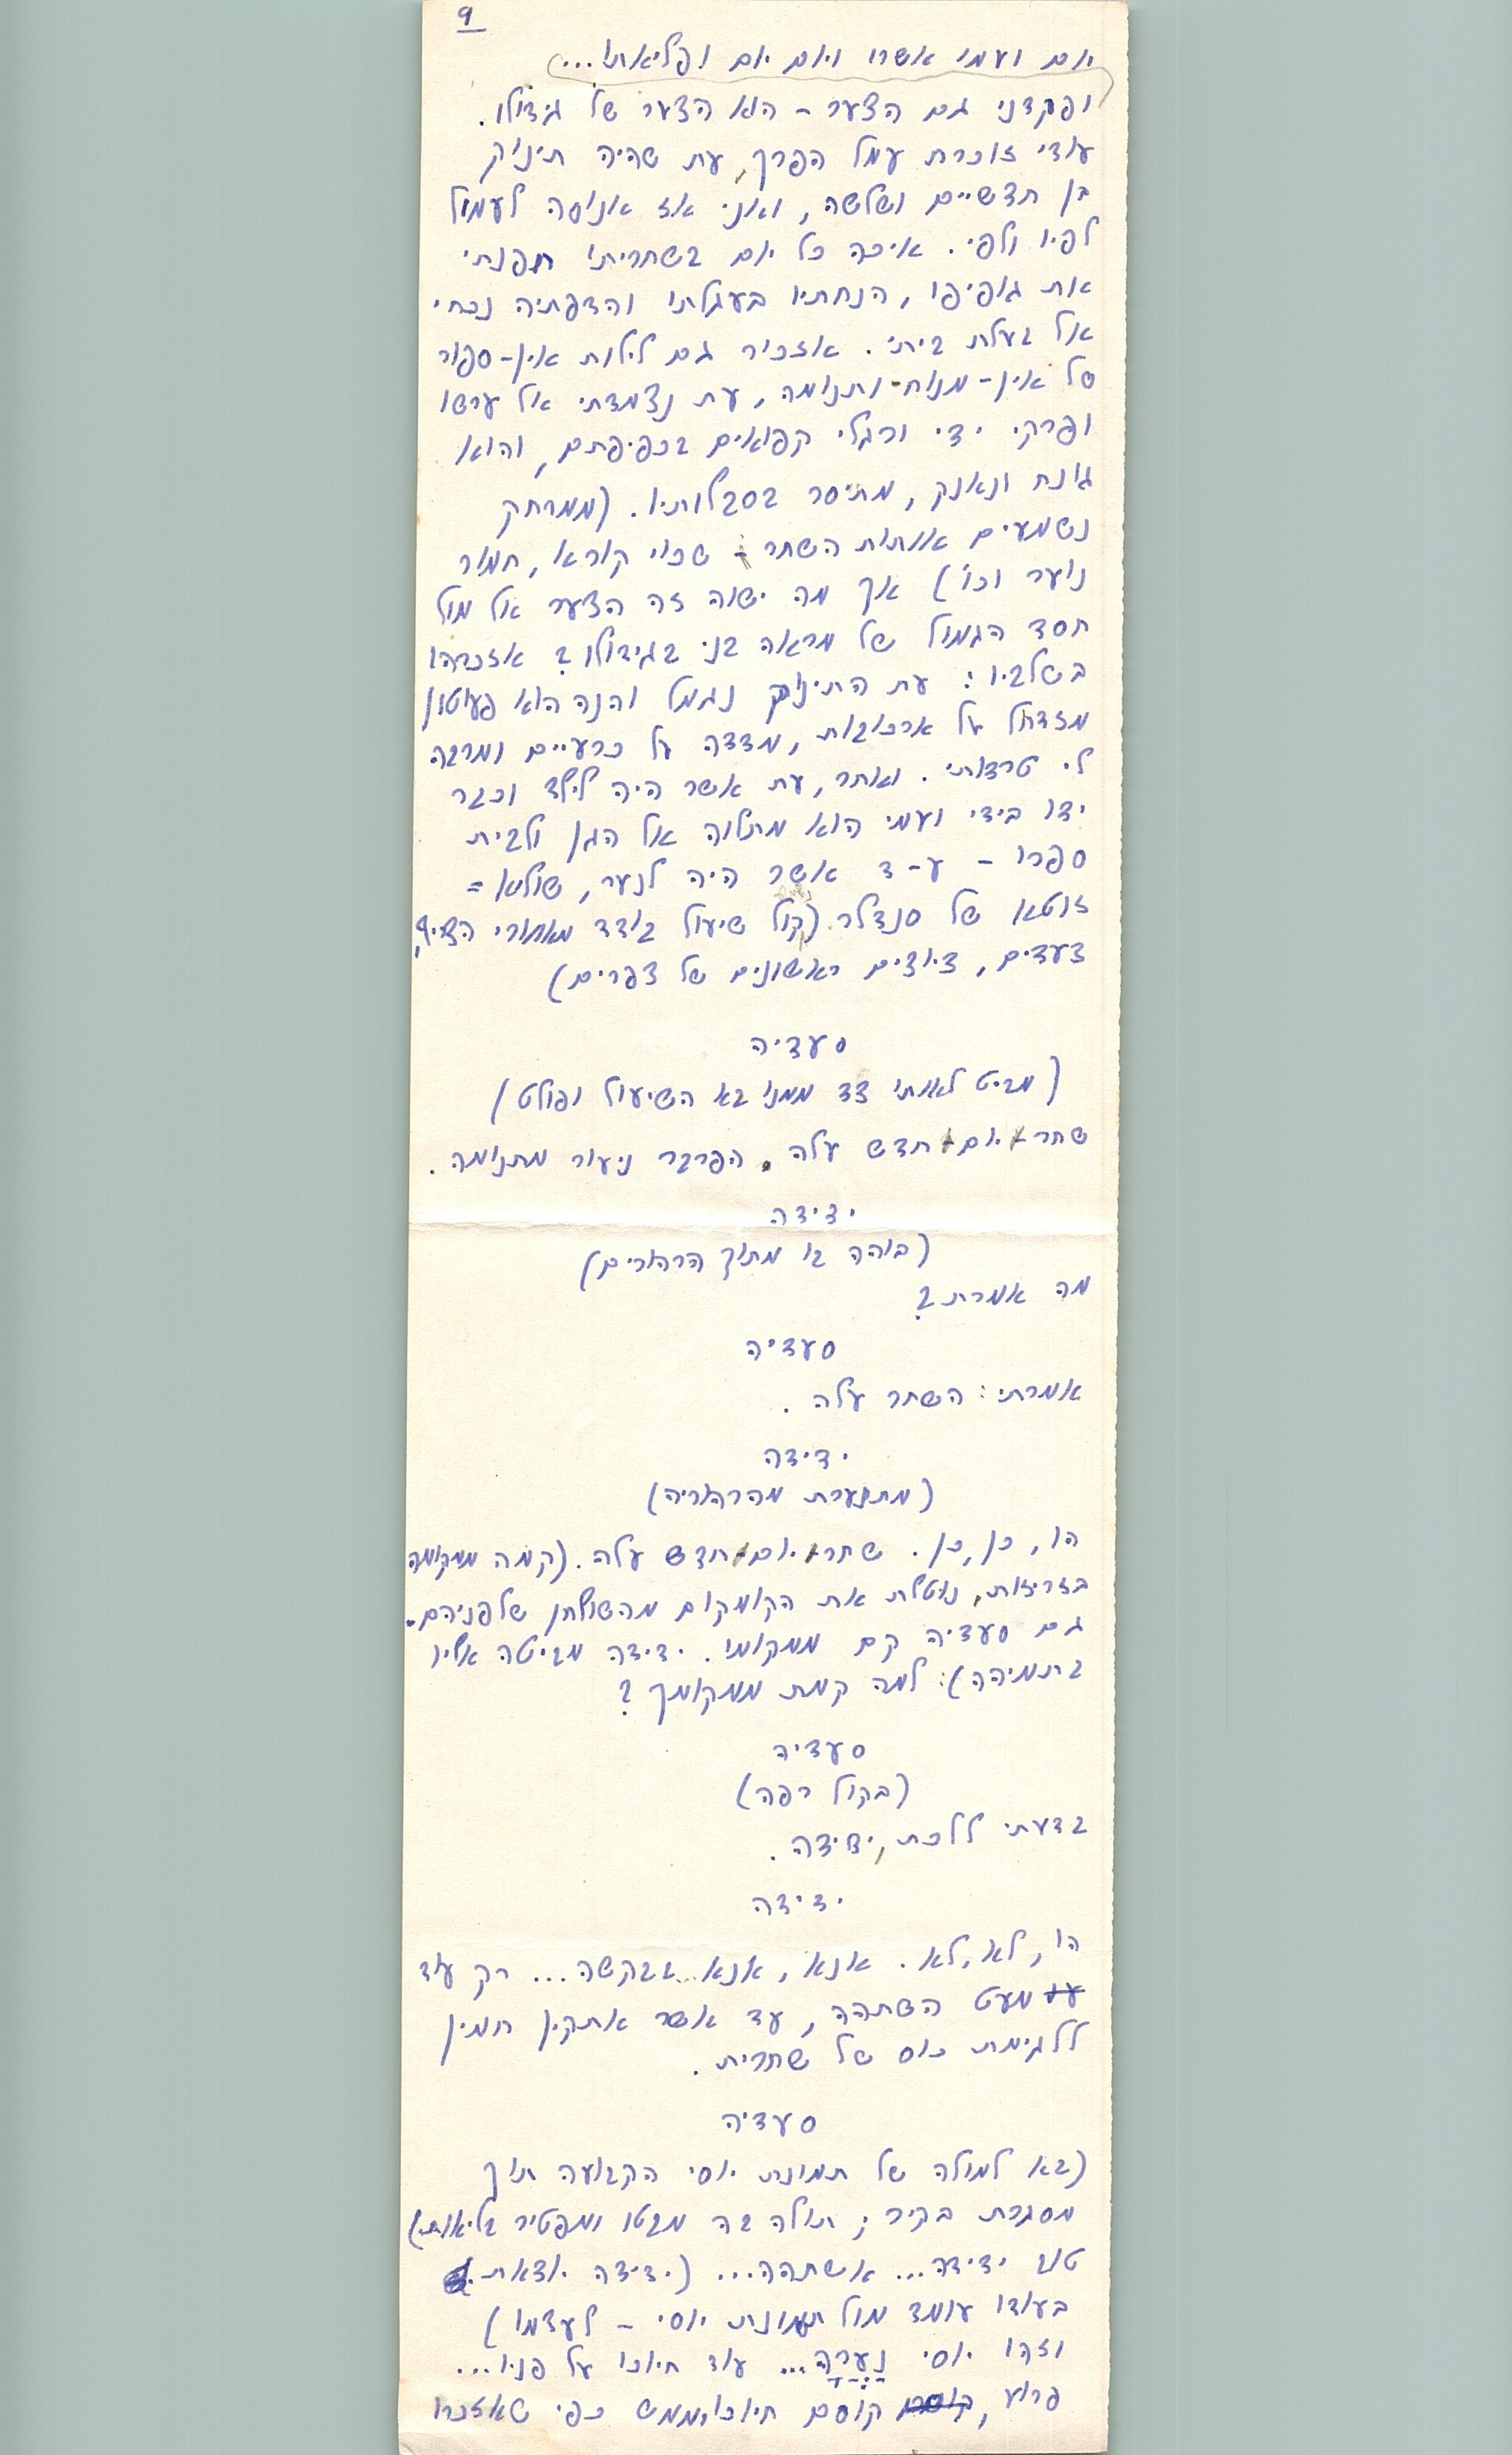 9
יום ועמו אשרו ויום יום ופליאתו...
ופקדני גם הצער - הוא הצער של גידולו.
עודי זוכרת עמל הפרך, עת שהיה תינוק
בן חדשיים ושלשה, ואני אז אנוסה לעמול
לפיו ולפי. איכה כל יום בשחריתו חפנתי
את גופיפו, הנחתיו בעגלתו והדפתיה נכחי
אל בעלת ביתי. אזכיר גם לילות אין-ספור
של אין-מנוח ותנומה, עת נצמדתי אל ערשו
ופרקי ידי ורגלי קפואים בכפיפתם, והוא
גונח ונאנק, מתיסר בסבלותיו. (ממרחק
נשמעים אותות השחר - שכוי קורא, חמור
נוער וכו') אך מה ישוה זה הצער אל מול
חסד הגמול של מראה בני בגידולו? אזכרהו
בשלביו: עת התינוק נגמל והנה הוא פעוטון
מזדחל על ארכובות, מדדה על כרעיים ומרבה
לי טרדותי. ואחר, עת אשר היה לילד וכבר
ידו בידי ועמי הוא מתלוה אל הגן ולבית
ספרו - ע-ד אשר היה לנער, שוליא=
זוטא של סנדלר. (קול שיעול בודד מאחורי הצריף,
צעדים, ציוצים ראשונים של צפרים)
סעדיה
(מביט לאותו צד ממנו בא השיעול ופולט)
שחר יום חדש עלה. הפרבר ניעור מתנומה.
ידידה
(בוהה בו מתוך הרהורים)
מה אמרת?
סעדיה
אמרתי: השחר עלה.
ידידה
(מתנערת מהרהוריה)
הו, כן, כן. שחר יום חדש עלה. (קמה ממקומה
בזריזות, נוטלת את הקומקום מהשולחן שלפניהם.
גם סעדיה קם ממקומו. ידידה מביטה אליו
בתמיהה): למה קמת ממקומך?
סעדיה
(בקול רפה)
בדעתי ללכת, ידידה.
ידידה
הו, לא, לא. אנא, אנא בבקשה... רק עוד
מעט השתהה, עד אשר אתקין חמין
ללגימת כוס של שחרית.
סעדיה
(בא למולה של תמונת יוסי הקבועה תוך
מסגרת בקיר; תולה בה מבטו ומפטיר בליאות)
טוב ידידה... אשתהה... (ידידה יוצאת.
בעודו עומד מול תמונת יוסי - לעצמו)
וזהו יוסי נַעֲרָהּ... עוד חיוכו על פניו...
פרוע, קוסם חיוכו, ממש כפי שאזכרו